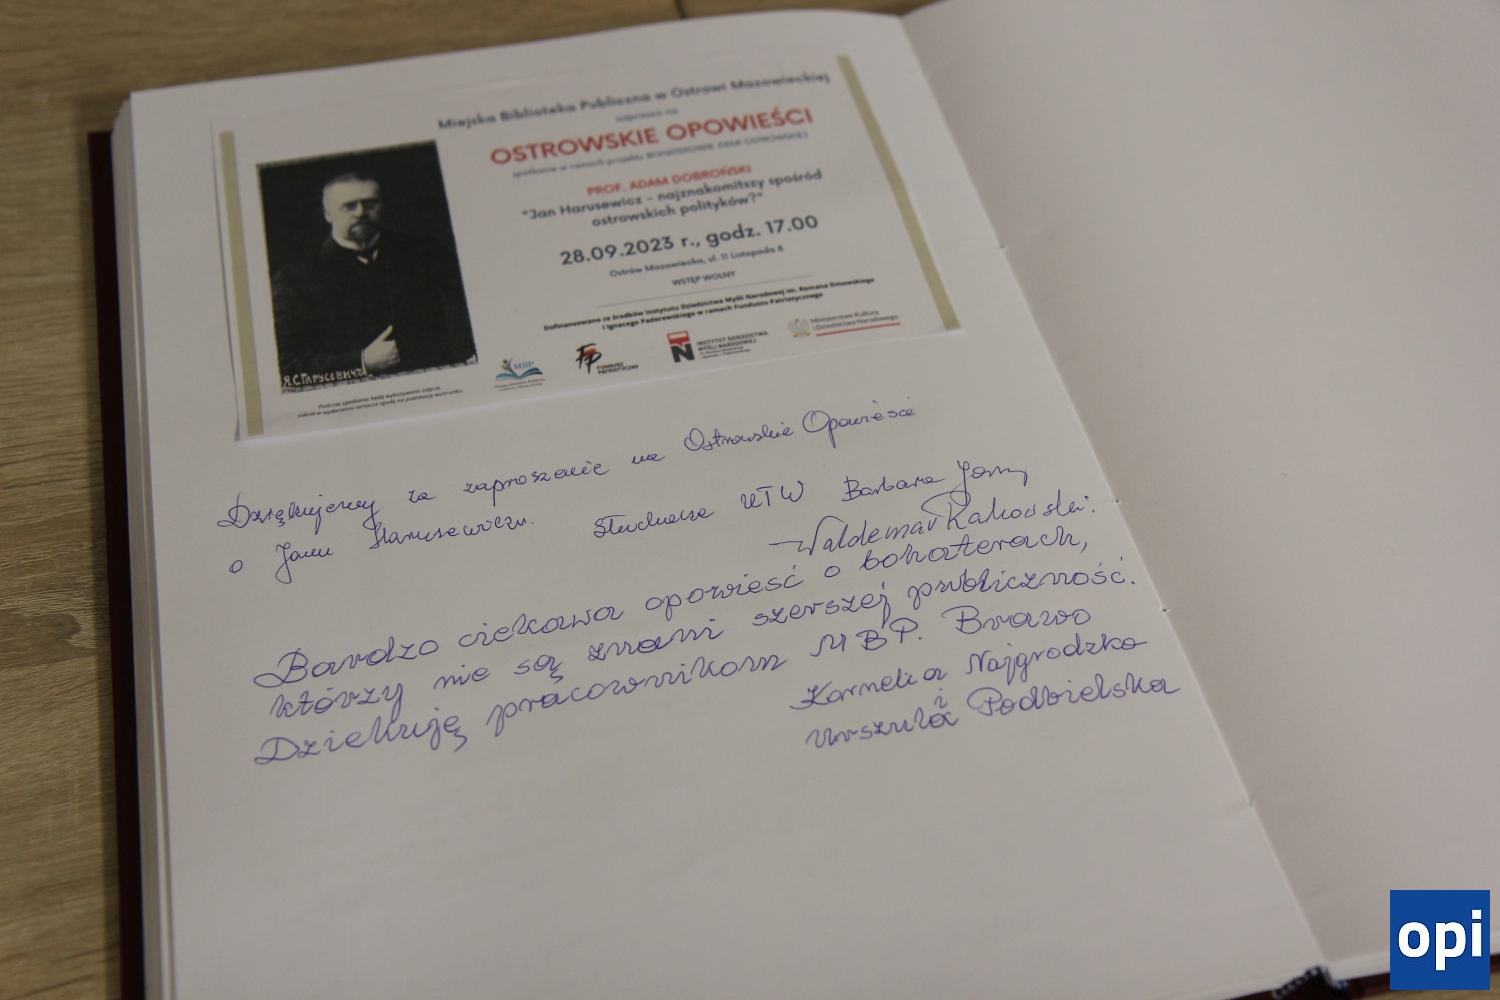 Miejska Biblioteka Publiczna w Ostrowi Mazowieckiej
zaprasza na
OSTROWSKIE OPOWIEŚCI
spotkanie w ramach projektu BOHATEROWIE ZIEMI OSTROWSKIEJ
PROF. ADAM DOBROŃSKI
"Jan Harusewicz - najznakomitszy spośród
ostrowskich polityków?"
28.09.2023 r., godz. 17.00
Ostrów Mazowiecka, ul. 11 Listopada 8
WSTĘP WOLNY
Dofinansowano ze środków Instytutu Dziedzictwa Myśli Narodowej im. Romana Dmowskiego
i Ignacego Paderewskiego w ramach Funduszu Patriotycznego
Я.С.Гарусевичъ
Podczas spotkania będą wykonywane zdjęcia.
Udział w wydarzeniu oznacza zgodę na publikację wizerunku
MBP
FP FUNDUSZ
PATRIOTYCZNY
INSTYTUT DZIEDZICTWA
MYŚLI NARODOWEJ
Ministerstwo Kultury
i Dziedzictwa Narodowego
Dziękujemy za zaproszenie na Ostrowskie Opowieści
o Janie Harusewiczu. Słuchacze UTW Barbara
Waldemar Rakowski
Bardzo ciekawa opowieść o bohaterach,
którzy nie są znani szerszej publiczność.
Dziekuję pracownikom MBP. Brawo
Kornelia Najgrodzka
i
Urszula Podbielska
opi